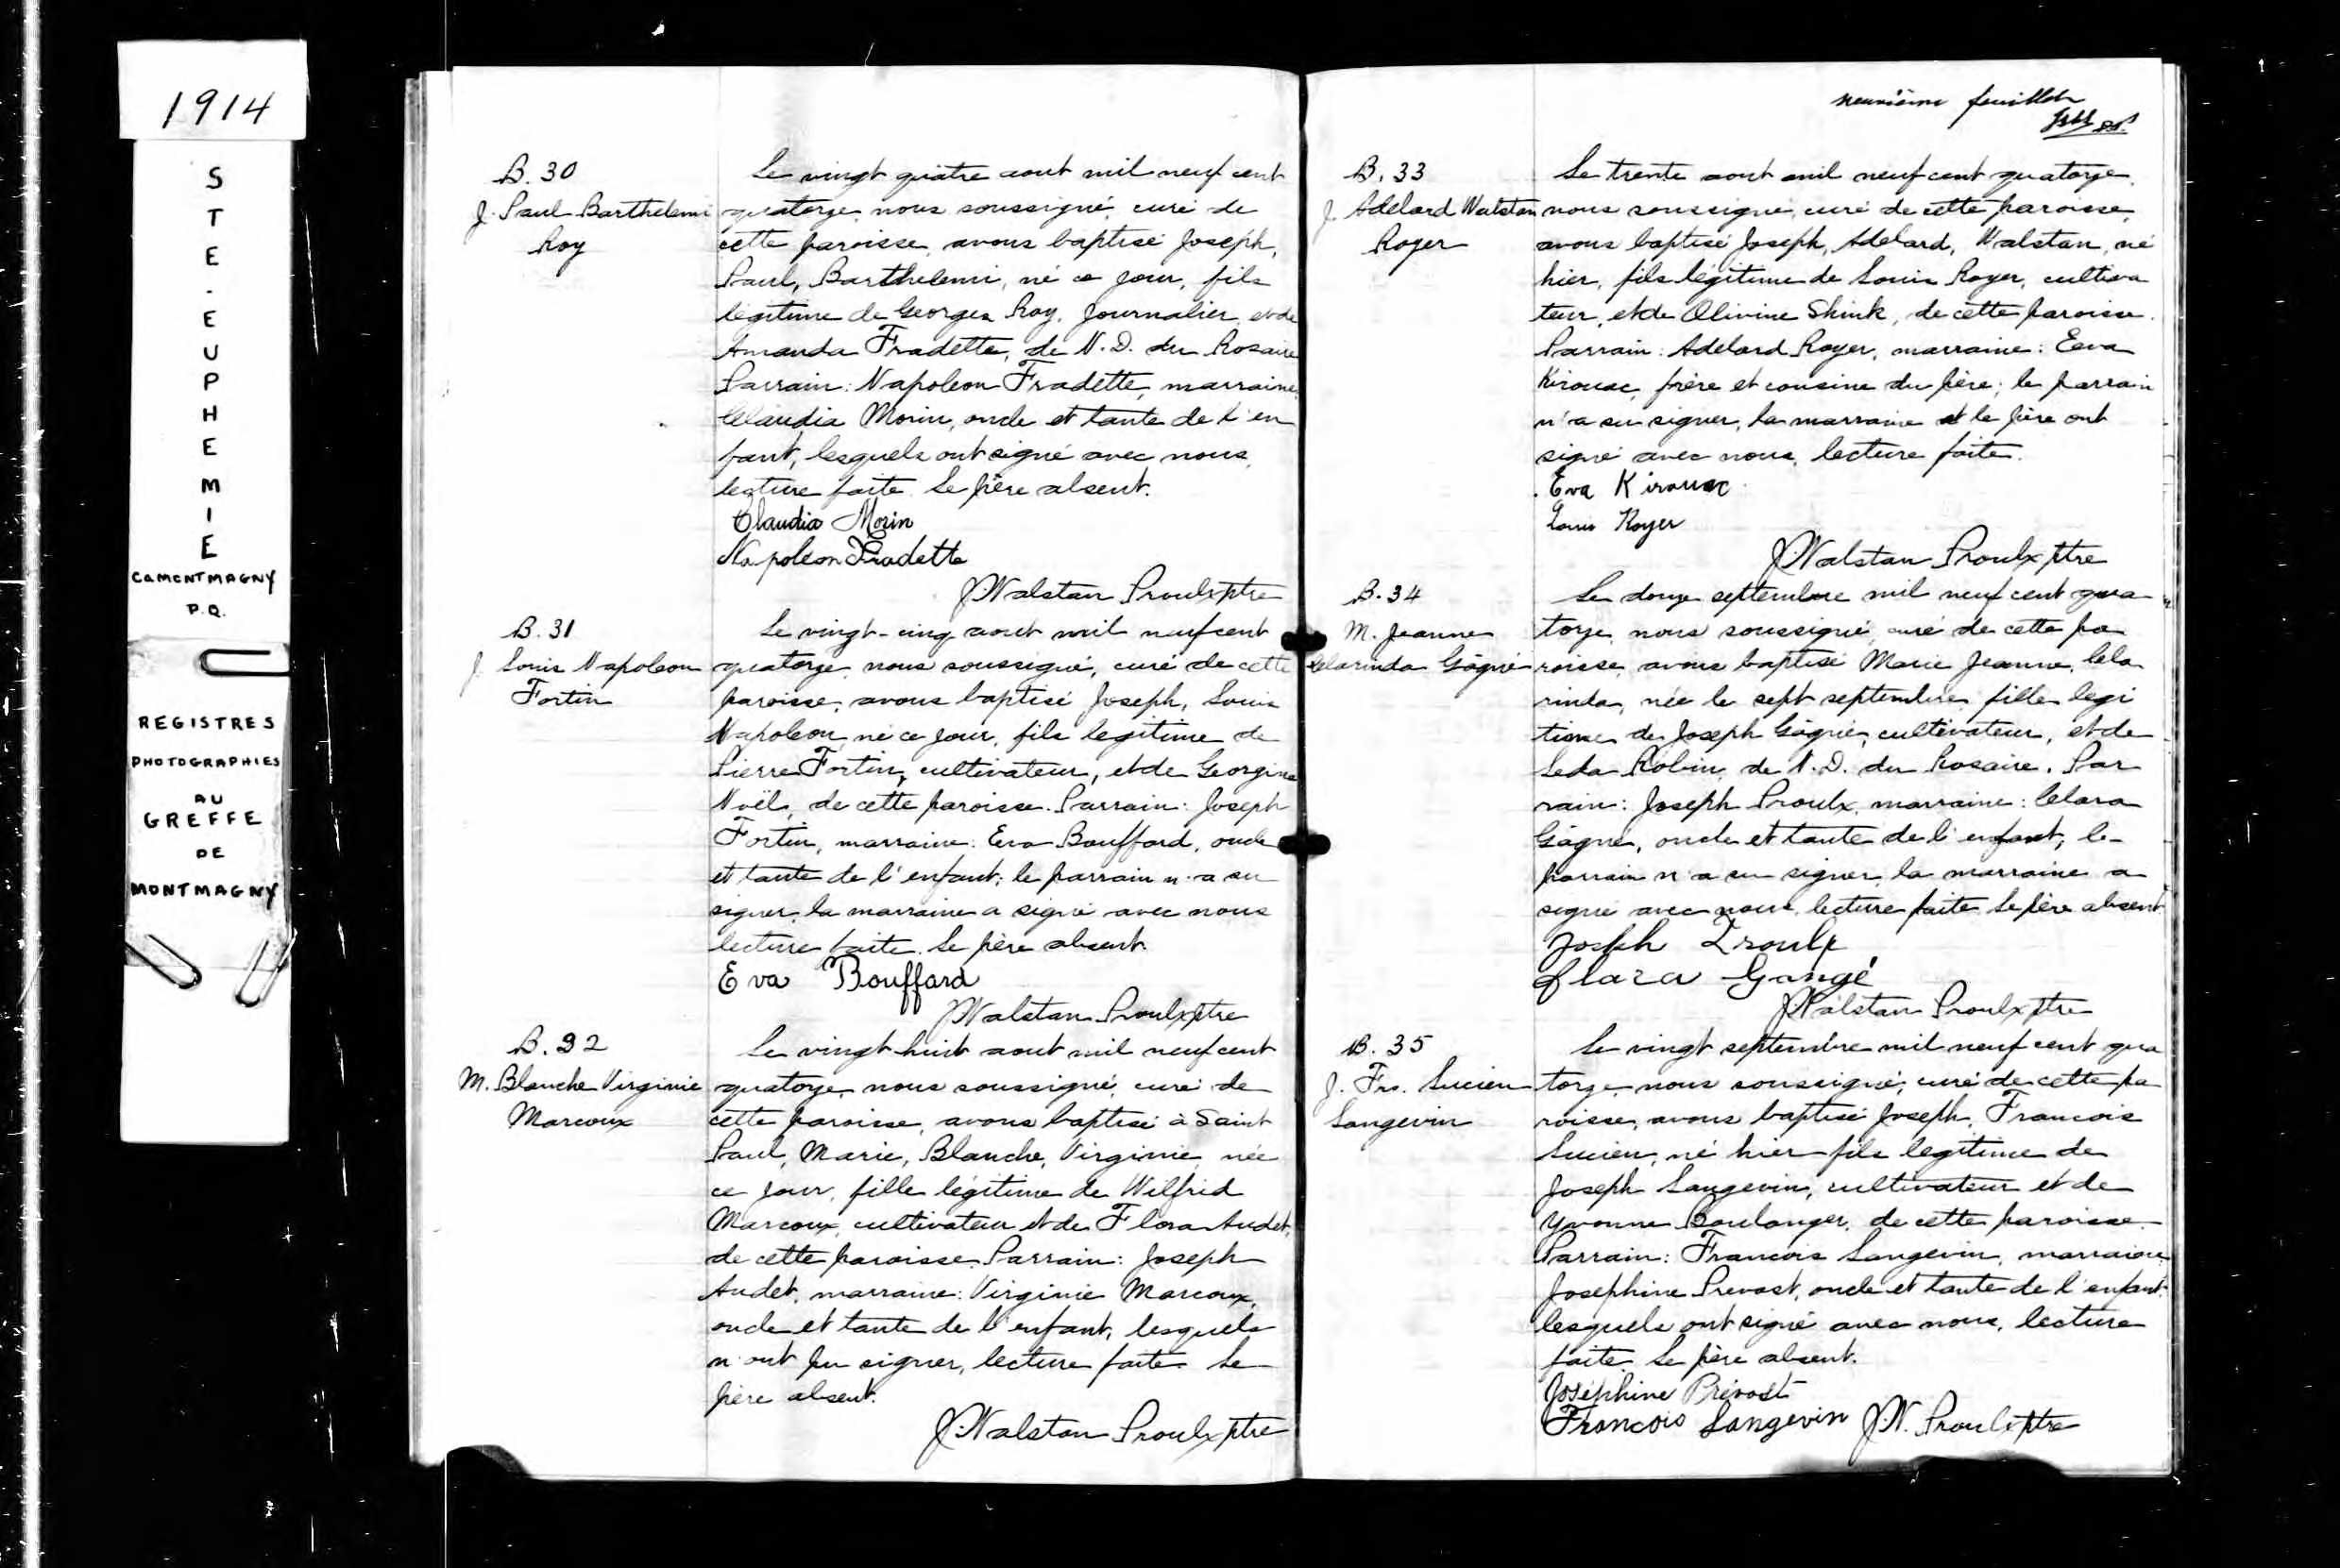 1914
S
T
E
.
E
U
P
H
E
M
I
E
Co MONTMAGNY
P.Q.
REGISTRES
PHOTOGRAPHIES
AU
GREFFE
DE
MONTMAGNY
B. 30
J. Paul Barthelemi
Roy
Le vingt quatre aout mil neuf cent
quatorze, nous soussigné, curé de
cette paroisse, avons baptisé Joseph,
Paul, Barthelemi, né ce jour, fils
legitime de Georges Roy, journalier, et de
Amanda Fradette, de N.D. du Rosaire
Parrain: Napoleon Fradette, marraine
Claudia Morin, oncle et tante de l'en
fant, lesquels ont signé avec nous,
lecture faite. Le père absent.
Claudia Morin
Napoléon Fradette
J. Walstan Proulx ptre
B. 31
J. Louis Napoleon
Fortin
Le vingt-cinq aout mil neuf cent
quatorze, nous soussigné, curé de cette
paroisse, avons baptisé Joseph, Louis
Napoleon, né ce jour, fils legitime de
Pierre Fortin, cultivateur, et de Georgina
Noël, de cette paroisse. Parrain: Joseph
Fortin, marraine: Eva Bouffard, oncle
et tante de l'enfant; le parrain n'a su
signer, la marraine a signé avec nous
lecture faite. Le père absent.
Eva Bouffard
J. Walstan Proulx ptre
B. 32
M. Blanche Virginie
Marcoux
Le vingt-huit aout mil neuf cent
quatorze, nous soussigné, curé de
cette paroisse, avons baptisé à Saint
Paul, Marie, Blanche, Virginie, née
ce jour, fille légitime de Wilfrid
Marcoux, cultivateur et de Flora Audet,
de cette paroisse. Parrain: Joseph
Audet, marraine: Virginie Marcoux,
oncle et tante de l'enfant, lesquels
n'ont pu signer, lecture faite. Le
père absent.
J. Walstan Proulx ptre
neuvième feuillet
B. 33
J. Adelard Walstan
Royer
Le trente aout mil neuf cent quatorze,
nous soussigné, curé de cette paroisse,
avons baptisé Joseph, Adelard, Walstan, né
hier, fils légitime de Louis Royer, cultiva
teur, et de Olivine Shink, de cette paroisse.
Parrain: Adelard Royer, marraine: Eva
Kirouac, frère et cousine du père; le parrain
n'a su signer, la marraine et le père ont
signé avec nous, lecture faite.
Eva Kirouac
Louis Royer
J. Walstan Proulx ptre
B. 34
M. Jeanne
Clarinda Gâgné
Le douze septembre mil neuf cent qua
torze, nous soussigné, curé de cette pa
roisse, avons baptisé Marie Jeanne, Cla
rinda, née le sept septembre, fille legi
time de Joseph Gâgné, cultivateur, et de
Leda Robin, de N.D. du Rosaire. Par
rain: Joseph Proulx, marraine: Clara
Gâgné, oncle et tante de l'enfant; le
parrain n'a su signer, la marraine a
signé avec nous, lecture faite. Le père absent
Joseph Proulx
Clara Gangé
J. Walstan Proulx ptre
B. 35
J. Frs. Lucien
Langevin
Le vingt septembre mil neuf cent qua
torze, nous soussigné, curé de cette pa
roisse, avons baptisé Joseph, Francois
Lucien, né hier fils legitime de
Joseph Langevin, cultivateur et de
Yvonne Boulanger, de cette paroisse.
Parrain: Francois Langevin, marraine,
Josephine Prevost, oncle et tante de l'enfant,
lesquels ont signé avec nous, lecture
faite. Le père absent.
Joséphine Prévost
Francois Langevin J.W. Proulx ptre